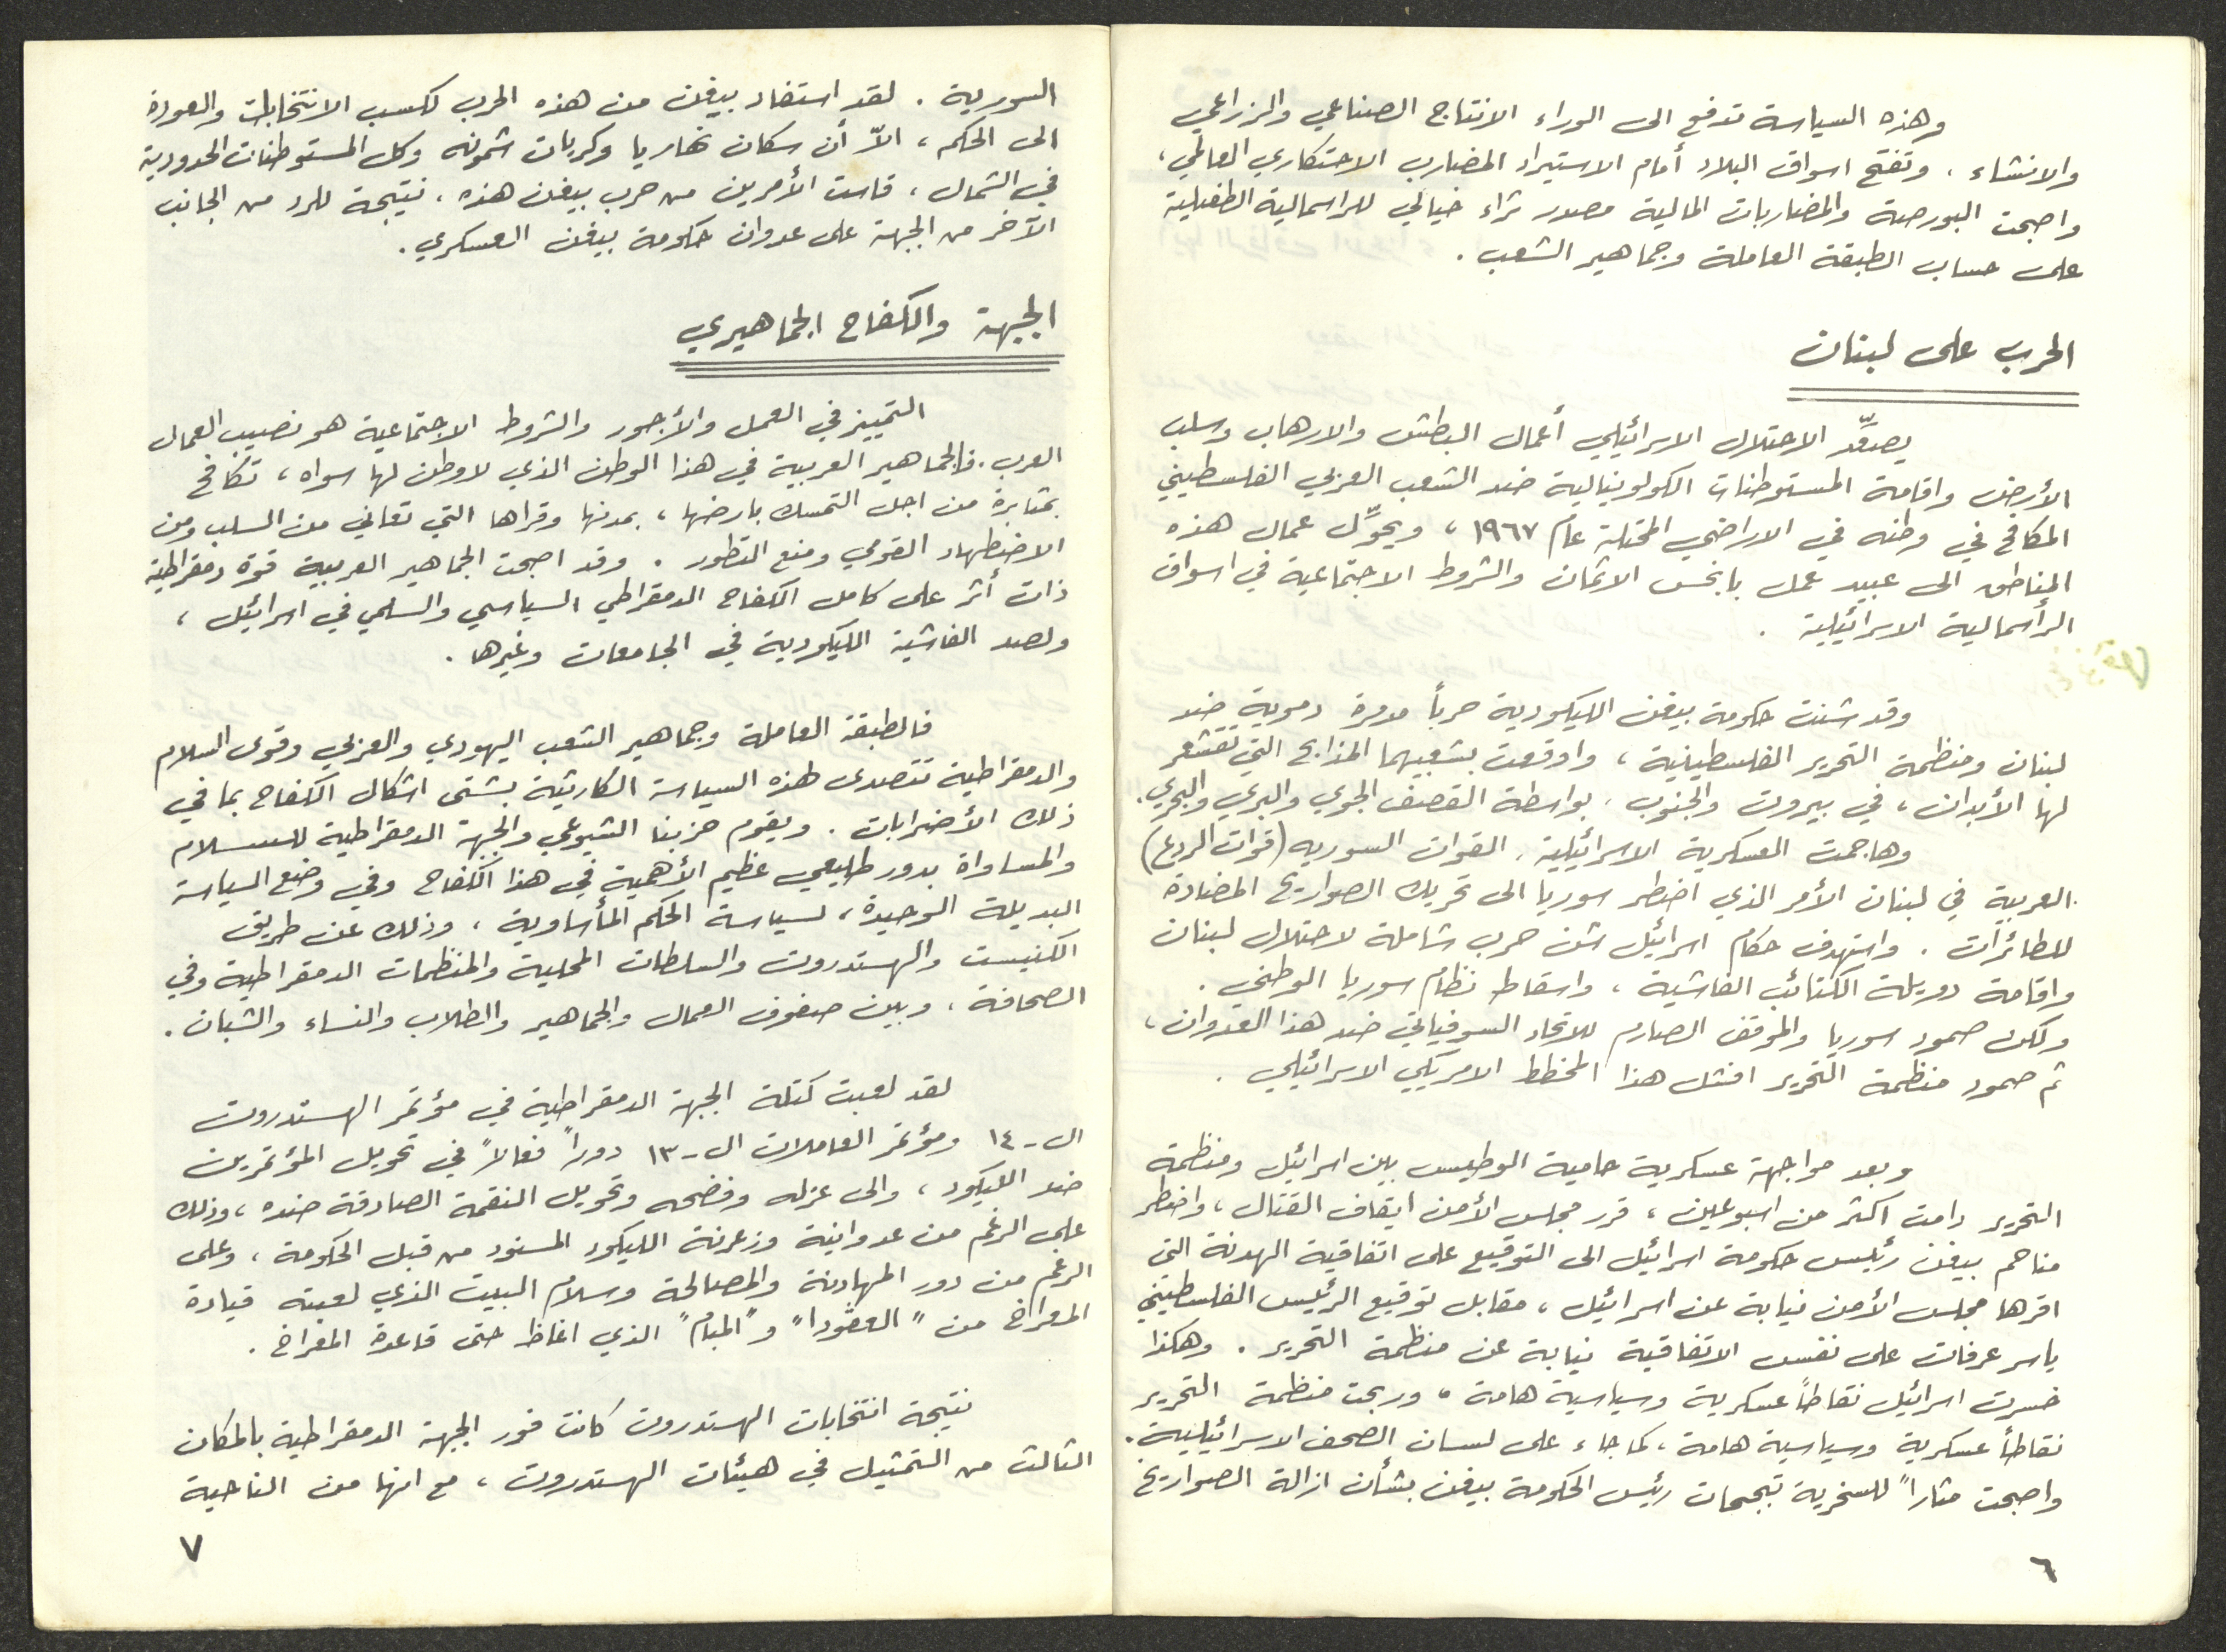 وهذه السياسة تدفع الى الوراء الانتاج الصناعي والزراعي
والانشاء ، وتفتح اسواق البلاد أمام الاستيراد المضارب الاحتكاري العالمي ،
واصبحت البورصة والمضاربات المالية مصدر ثراء خيالي للراسمالية الطفيلية
على حساب الطبقة العاملة وجماهير الشعب .
الحرب على لبنان
يصعِّد الاحتلال الاسرائيلي أعمال البطش والارهاب وسلب
الأرض واقامة المستوطنات الكولونيالية ضد الشعب العربي الفلسطيني
المكافح في وطنه في الاراضي المحتلة عام ١٩٦٧ ، ويحوِّل عمال هذه
المناطق الى عبيد عمل بابخس الاثمان والشروط الاجتماعية في اسواق
الرأسمالية الاسرائيلية .
وقد شنت حكومة بيغن الليكودية حرباً مدمرة دموية ضد
لبنان ومنظمة التحرير الفلسطينية ، واوقعت بشعبيهما المذابح التي تقشعر
لها الأبدان ، في بيروت والجنوب ، بواسطة القصف الجوي والبري والبحري .
وهاجمت العسكرية الاسرائيلية ، القوات السورية (قوات الردع)
العربية في لبنان الأمر الذي اضطر سوريا الى تحريك الصواريخ المضادة
للطائرات . واستهدف حكام اسرائيل شن حرب شاملة لاحتلال لبنان
واقامة دويلة الكتائب الفاشية ، واسقاط نظام سوريا الوطني .
ولكن صمود سوريا والموقف الصارم للاتحاد السوفياتي ضد هذا العدوان ،
ثم صمود منظمة التحرير افشل هذا المخطط الامريكي الاسرائيلي .
وبعد مواجهة عسكرية حامية الوطيس بين اسرائيل ومنظمة
التحرير دامت اكثر من اسبوعين ، قرر مجلس الأمن ايقاف القتال ، واضطر
مناحم بيغن رئيس حكومة اسرائيل الى التوقيع على اتفاقية الهدنة التي
اقرها مجلس الأمن نيابة عن اسرائيل ، مقابل توقيع الرئيس الفلسطيني
ياسر عرفات على نفس الاتفاقية نيابة عن منظمة التحرير . وهكذا
خسرت اسرائيل نقاطاً عسكرية وسياسية هامة ، وربحت منظمة التحرير
نقاطاً عسكرية وسياسية هامة ، كما جاء على لسان الصحف الاسرائيلية .
واصبحت مثاراً للسخرية تبجحات رئيس الحكومة بيغن بشأن ازالة الصواريخ
٦
السورية . لقد استفاد بيغن من هذه الحرب لكسب الانتخابات والعودة
الى الحكم ، الاّ أن سكان نهاريا وكريات شمونه وكل المستوطنات الحدودية
في الشمال ، قاست الأمرين من حرب بيغن هذه ، نتيجة للرد من الجانب
الآخر من الجبهة على عدوان حكومة بيغن العسكري .
الجبهة والكفاح الجماهيري
التمييز في العمل والأجور والشروط الاجتماعية هو نصيب العمال
العرب . فالجماهير العربية في هذا الوطن الذي لا وطن لها سواه ، تكافح
بمثابرة من اجل التمسك بارضها ، بمدنها وقراها التي تعاني من السلب ومن
الاضطهاد القومي ومنع التطور . وقد اصبحت الجماهير العربية قوة دمقراطية
ذات أثر على كامل الكفاح الدمقراطي السياسي والسلمي في اسرائيل ،
ولصد الفاشية الليكودية في الجامعات وغيرها .
فالطبقة العاملة وجماهير الشعب اليهودي والعربي وقوى السلام
والدمقراطية تتصدى لهذه السياسة الكارثية بشتى اشكال الكفاح بما في
ذلك الأضرابات . ويقوم حزبنا الشيوعي والجبهة الدمقراطية للسلام
والمساواة بدور طليعي عظيم الأهمية في هذا الكفاح وفي وضع السياسة
البديلة الوحيدة ، لسياسة الحكم المأساوية ، وذلك عن طريق
الكنيست والهستدروت والسلطات المحلية والمنظمات الدمقراطية وفي
الصحافة ، وبين صفوف العمال والجماهير والطلاب والنساء والشبان .
لقد لعبت كتلة الجبهة الدمقراطية في مؤتمر الهستدروت
ال-١٤ ومؤتمر العاملات ال-١٣ دوراً فعالاً في تحويل المؤتمرين
ضد الليكود ، والى عزله وفضحه وتحويل النقمة الصادقة ضده ، وذلك
على الرغم من عدوانية وزعرنة الليكود المسنود من قبل الحكومة ، وعلى
الرغم من دور المهادنة والمصالحة وسلام البيت الذي لعبته قيادة
المعراخ من " العڤودا" و "المبام" الذي اغاظ حتى قاعدة المعراخ .
نتيجة انتخابات الهستدروت كانت فوز الجبهة الدمقراطية بالمكان
الثالث من التمثيل في هيئات الهستدروت ، مع انها من الناحية
٧